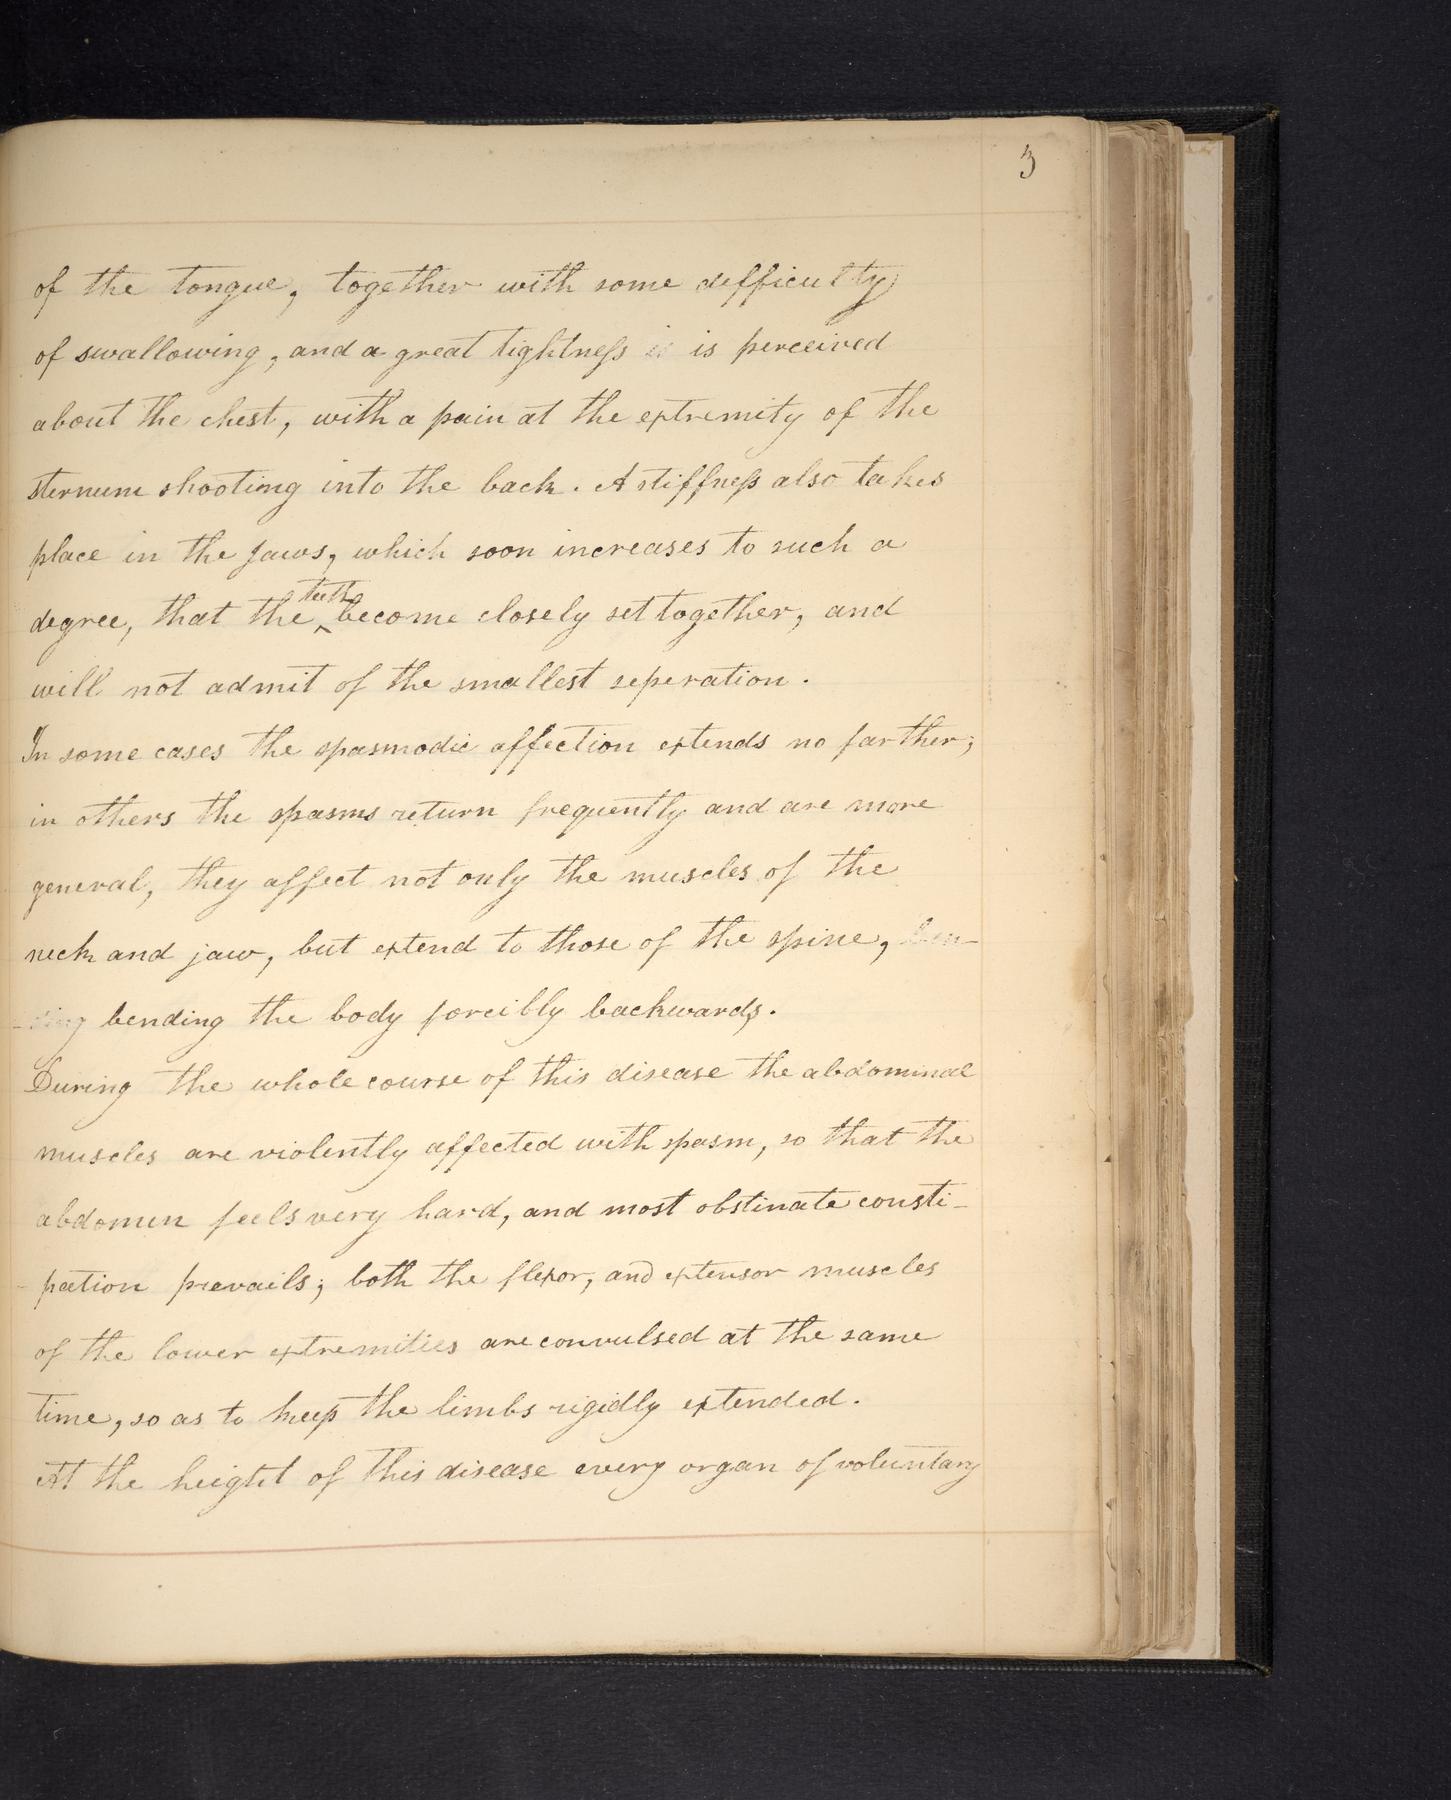 3
of the tongue, together with some defficulty
of swallowing, and a great tightness is is perceived
about the chest, with a pain at the extremity of the
sternum shooting into the back. A stiffness also takes
place in the jaws, which soon increases to such a
degree, that the teeth become closely set together, and
will not admit of the smallest seperation.
In some cases the spasmodic affection extends no farther;
in others the spasms return frequently and are more
general, they affect not only the muscles of the
neck and jaw, but extend to those of the spine, ben-
-ding bending the body forcibly backwards.
During the whole course of this disease the abdominal
muscles are violently affected with spasm, so that the
abdomen feels very hard, and most obstinate consti-
-pation prevails; both the flexor, and extensor muscles
of the lower extremities are convulsed at the same
time, so as to keep the limbs rigidly extended.
At the height of this disease every organ of voluntary